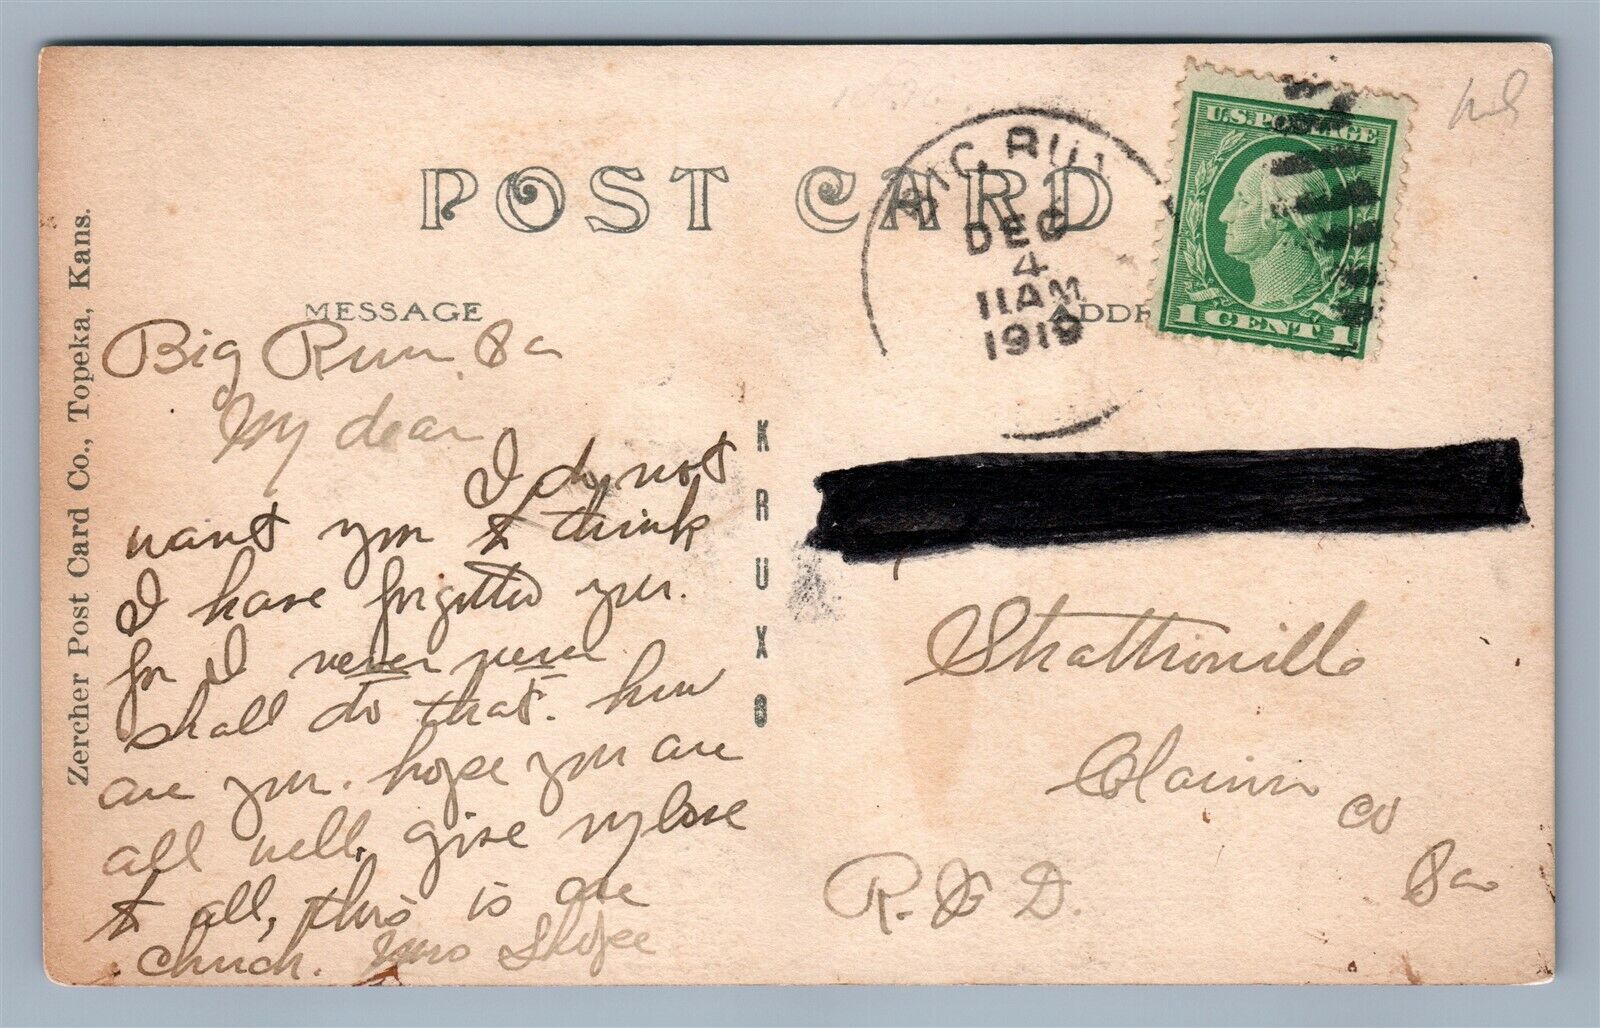 POST CARD
BIG RUN
DEC
4
11 AM
1919
U.S. POSTAGE
1 CENT 1
MESSAGE
ADDR
Zercher Post Card Co., Topeka, Kans.
KRUXO
Big Run Pa
My dear
I do not
want you to think
I have forgotted you.
for I never never
shall do that. how
are you. hope you are
all well, give my love
to all, this is our
church. Mrs
Strattonville
Clarion
Co
Pa
R. F. D.